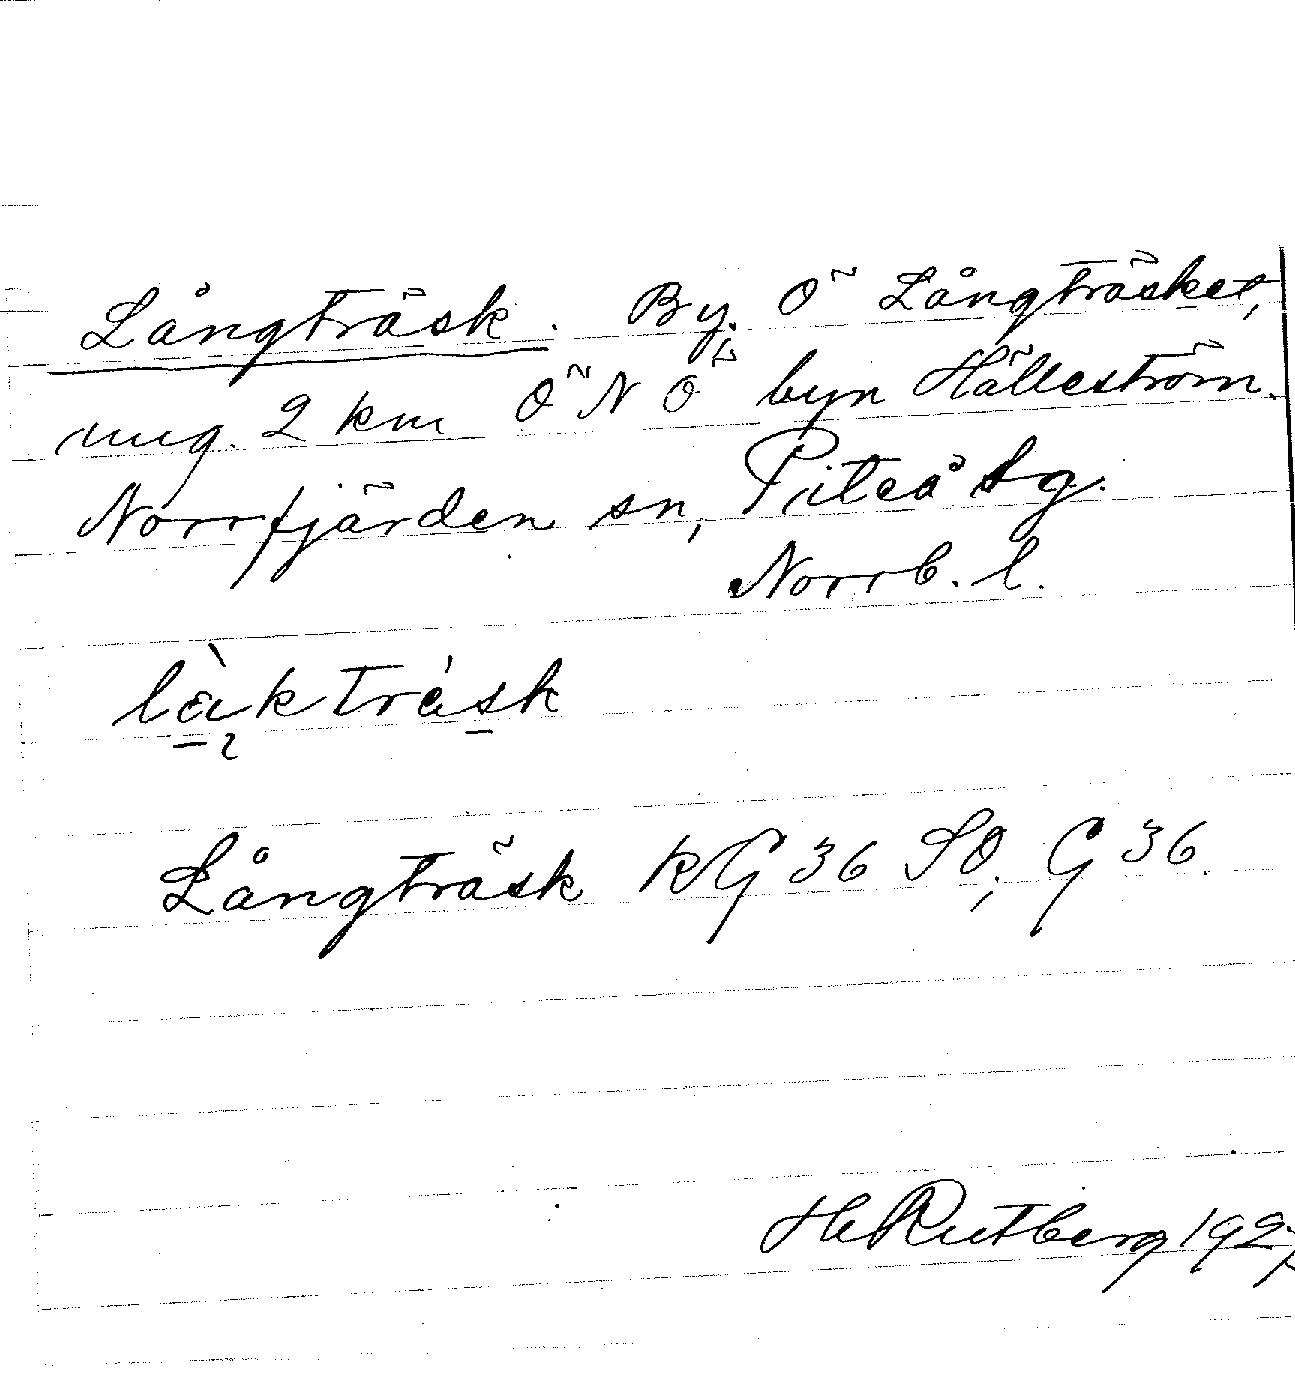 Långträsk. By, Ö Långträsket,
ung. 2 km ÖNÖ byn Hälleström.
Norrfjärden sn, Piteå tg.
Norrb. l.
làktrásk
Långträsk KG 36 SO, G 36.
H Rutberg 1927